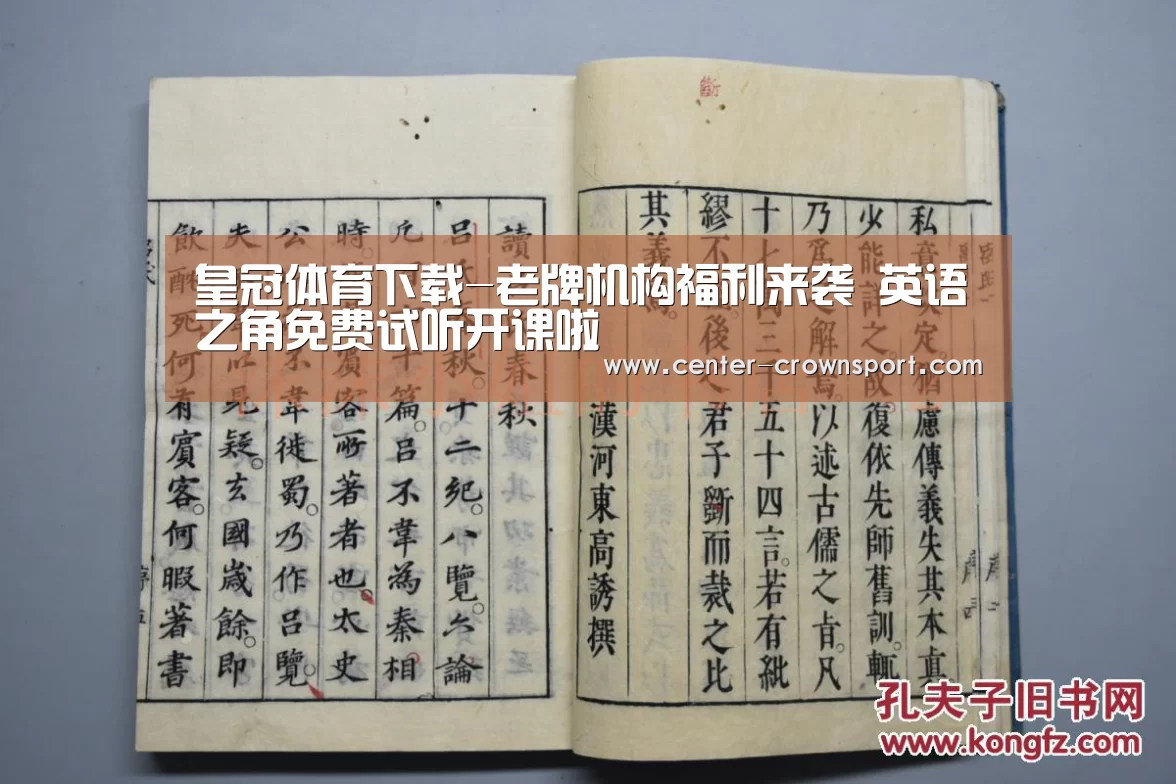 皇冠体育下载-老牌机构福利来袭 英语
之角免费试听开课啦
www.center-crownsport.com
私意改定猶慮傳義失其本真
少能詳之故復依先師舊訓。輒
乃爲之解焉。以述古儒之旨。凡
十七萬三千五十四言。若有紕
繆不經後之君子斷而裁之比
其義焉。
漢河東高誘撰
讀呂氏春秋
呂氏春秋。十二紀。八覽。六論
凡百六十篇。呂不韋為秦相
時。賓客所著者也。太史
公不韋徙蜀。乃作呂覽。
夫以見疑。去國歲餘。即
飲酖死何有賓客。何暇著書
孔夫子旧书网
www.kongfz.com